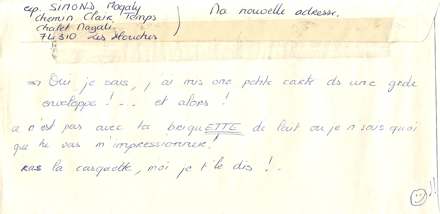 exp. SIMOND Magaly
chemin Clair Temps
chalet Magali
74310 Les Houches
Ma nouvelle adresse.
⇒ Oui je sais, j'ai mis une petite carte ds une gde
enveloppe ! . . . et alors !
ce n'est pas avec ta briquETTE de lait ou je n sais quoi
que tu vas m'impressionner !
ras la casquette, moi je t'le dis ! . .